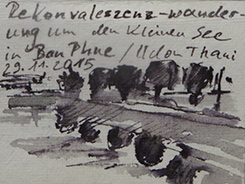 Rekonvaleszenz-wander
ung um den Kleinen See
in Ban Phue / Udon Thani
29.11.2015